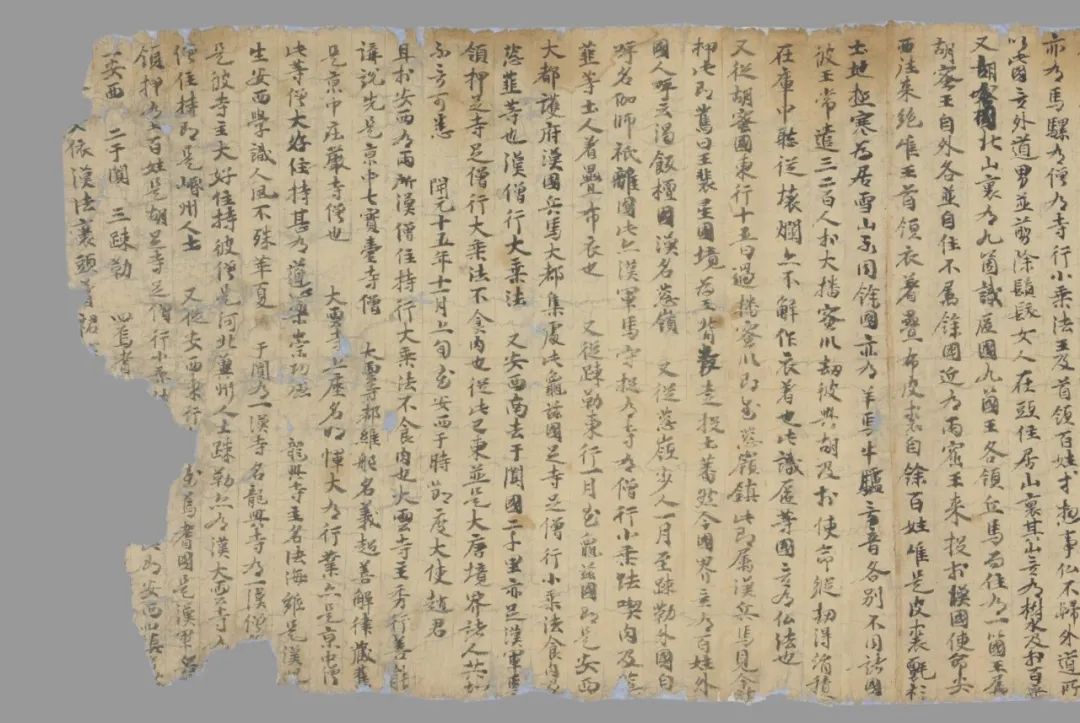 亦有馬騾有僧有寺行小乘法王及首領百姓才惣事仏不歸外道所
以此國無外道男並剪除鬚髮女人在頭住居山裏其山無有樹木及於百草
又胡蜜國北山裏有九箇識匿國九箇王各領兵馬而住有一箇王属
胡蜜王自外各並自住不属餘國近有兩窟王來投於漢國使命安
西往來絶唯王首領衣著疊布皮裘自餘百姓唯是皮裘氈衫
土地極寒為居雪山不同餘國亦有羊馬牛驢言音各別不同諸國
彼王常遣三二百人於大播蜜川劫彼興胡及於使命縱劫得絹積
在庫中聽從壞爛亦不解作衣著也此識匿等國無有仏法也
又從胡蜜國東行十五日過播蜜川即至葱嶺鎮此即属漢兵馬見今
押此即舊日王裴星國境為王背叛走投土蕃然今國界無有百姓外
國人呼云渴飯檀國漢名葱嶺 又從葱嶺步入一月至踈勒外國自
呼名伽師祇離國此亦漢軍馬守捉有寺有僧行小乘法喫肉及葱
韮等土人著疊布衣也 又從踈勒東行一月至龜茲國即是安西
大都護府漢國兵馬大都集處此龜茲國足寺足僧行小乘法食肉及
葱韮等也漢僧行大乘法 又安西南去于闐國二千里亦足漢軍馬
領押足寺足僧行大乘法不食肉也從此已東並是大唐境界諸人共知
不言可悉 開元十五年十一月上旬至安西于時節度大使趙君
且於安西有兩所漢僧住持行大乘法不食肉也大雲寺主秀行善能
講說先是京中七寶臺寺僧 大雲寺都維那名義超善解律藏舊
是京中莊嚴寺僧也 大雲寺上座名明惲大有行業亦是京中僧
此等僧大好住持甚有道心樂崇功德 龍興寺主名法海雖是漢兒
生安西學識人風不殊華夏 于闐有一漢寺名龍興寺有一漢僧
是彼寺主大好住持彼僧是河北冀州人士踈勒亦有漢大雲寺有
僧住持即是崏州人士 又從安西東行 至焉耆國是漢軍兵
領押有王百姓是胡足寺足僧行小乘 即安西四鎮
一安西 二于闐 三踈勒 四焉耆
依漢法裹頭著裙